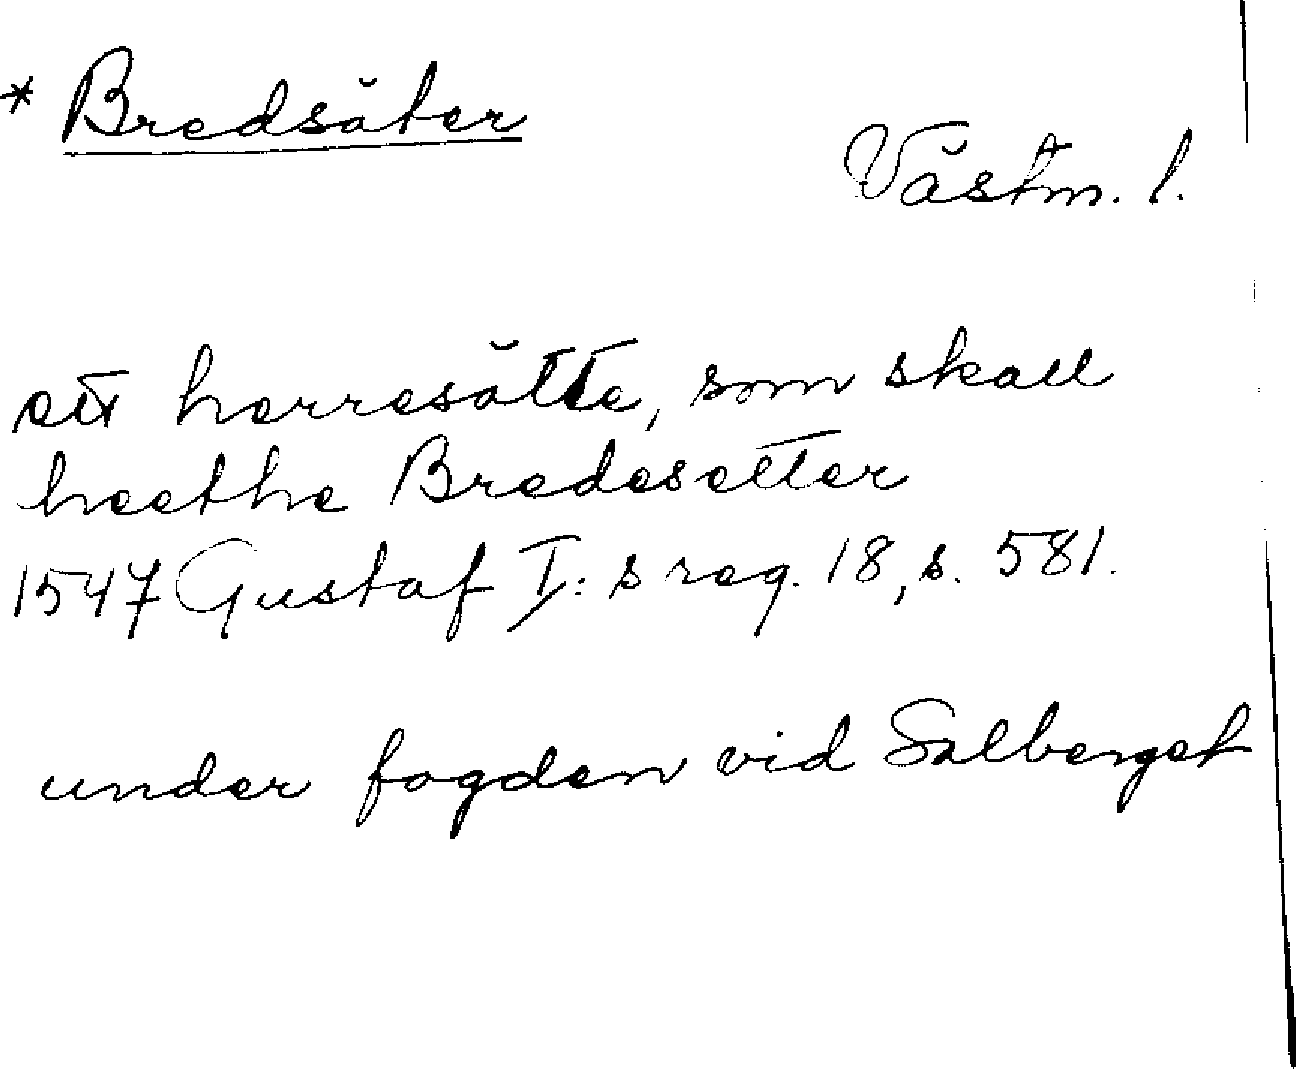 * Bredsäter
Västm. l.
ett herresätte, som skall
heethe Bredesetter
1547 Gustaf I:s reg. 18, s. 581.
under fogden vid Salberget